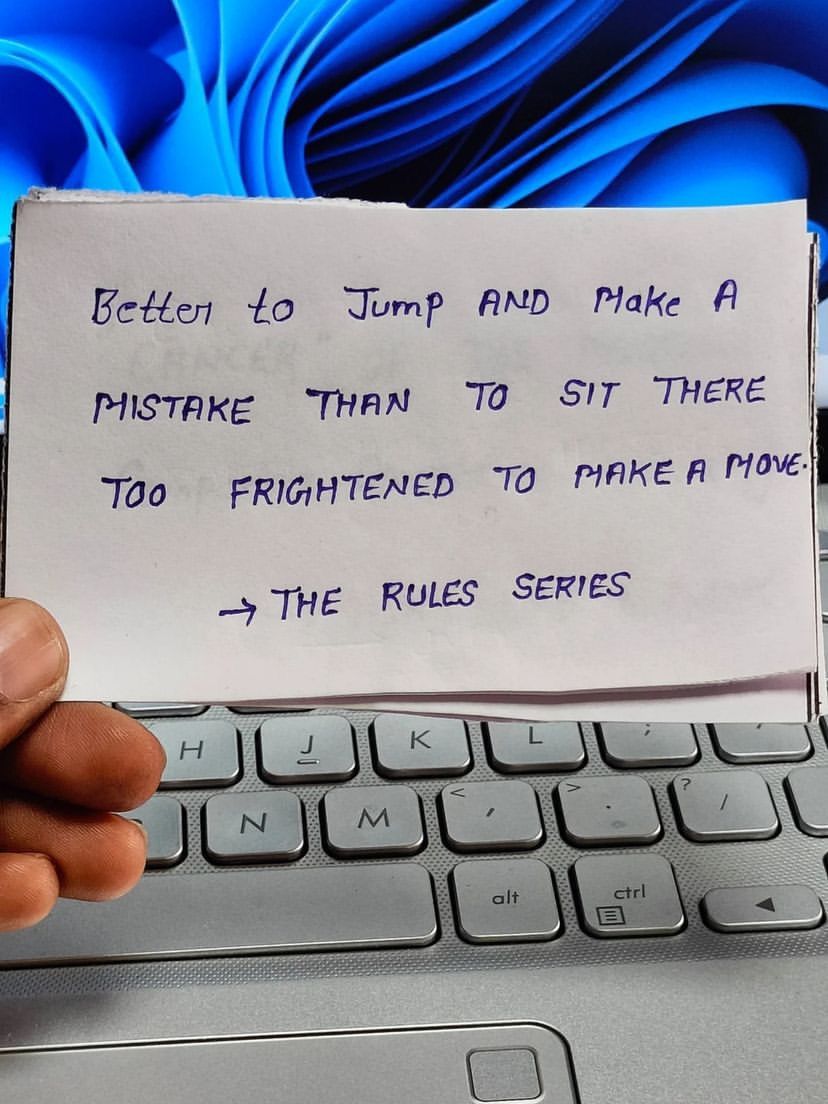 Better to Jump AND Make A
MISTAKE THAN TO SIT THERE
TOO FRIGHTENED TO MAKE A MOVE.
→ THE RULES SERIES
H J K L ;
N M < , > . ? /
alt ctrl